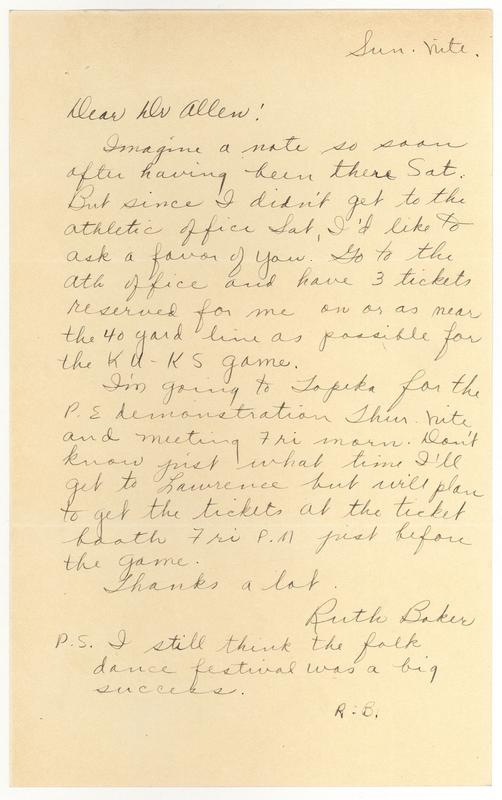 Sun. nite.
Dear Dr Allen!
Imagine a note so soon
after having been there Sat.
But since I didn't get to the
athletic office Sat, I'd like to
ask a favor of you. Go to the
ath office and have 3 tickets
reserved for me on or as near
the 40 yard line as possible for
the KU-KS game.
I'm going to Topeka for the
P.E demonstration Thur. nite
and meeting Fri morn. Don't
know just what time I'll
get to Lawrence but will plan
to get the tickets at the ticket
booth Fri P.M just before
the game.
Thanks a lot.
Ruth Baker
P.S. I still think the folk
dance festival was a big
success.
R.B.